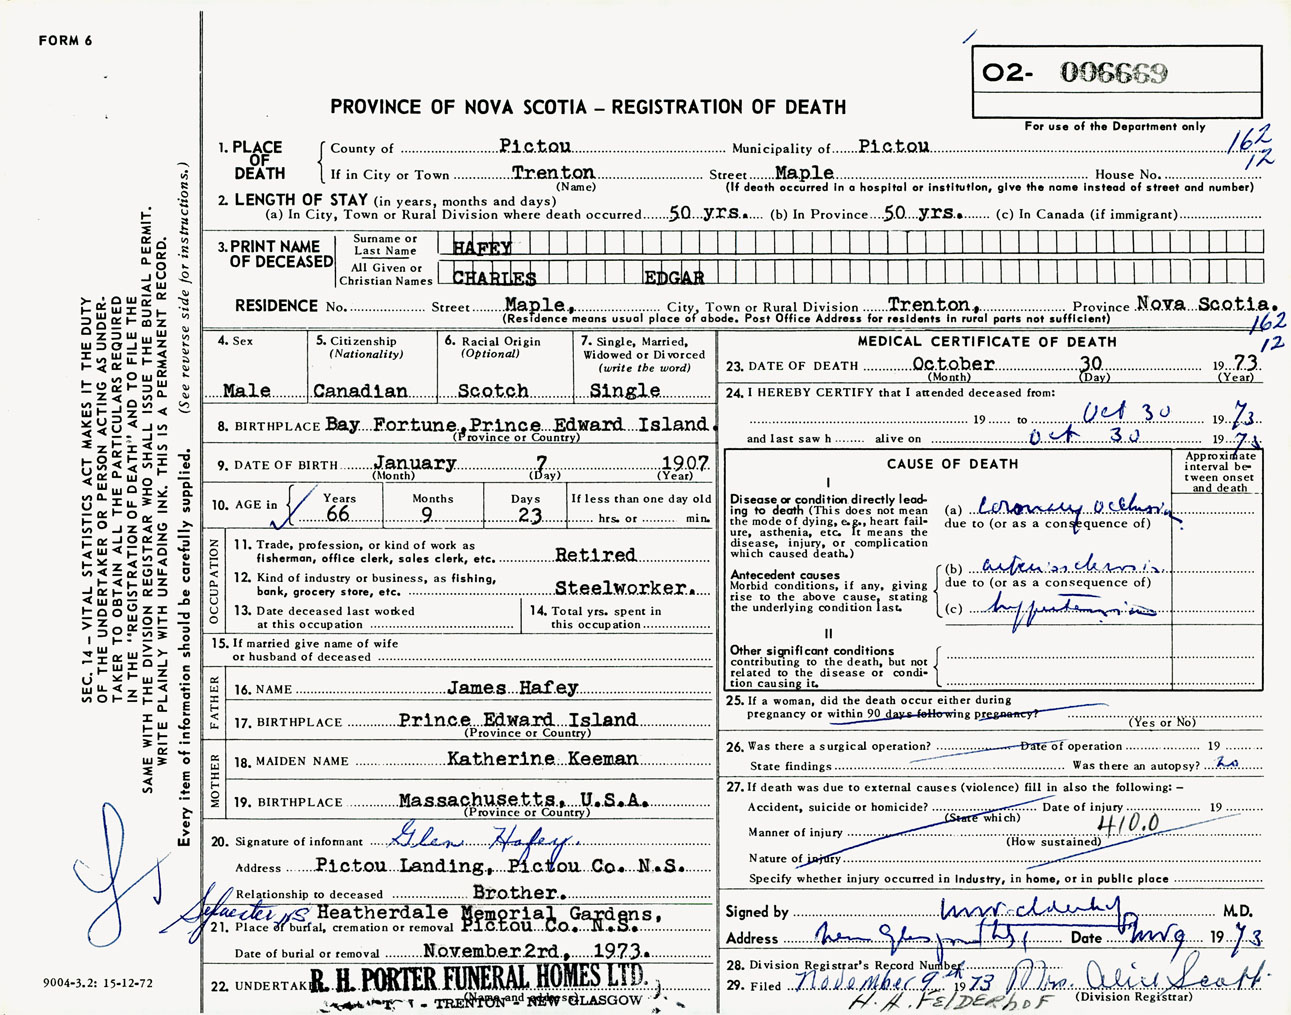 FORM 6
O2- 006669
PROVINCE OF NOVA SCOTIA – REGISTRATION OF DEATH
For use of the Department only
162
12
1. PLACE OF DEATH
County of Pictou Municipality of Pictou
If in City or Town Trenton Street Maple House No.
(Name) (If death occurred in a hospital or institution, give the name instead of street and number)
2. LENGTH OF STAY (in years, months and days)
(a) In City, Town or Rural Division where death occurred 50 yrs. (b) In Province 50 yrs. (c) In Canada (if immigrant)
3. PRINT NAME OF DECEASED
Surname or Last Name HAFEY
All Given or Christian Names CHARLES EDGAR
RESIDENCE No. Street Maple, City, Town or Rural Division Trenton, Province Nova Scotia.
(Residence means usual place of abode. Post Office Address for residents in rural parts not sufficient)
162
12
4. Sex
Male
5. Citizenship
(Nationality)
Canadian
6. Racial Origin
(Optional)
Scotch
7. Single, Married,
Widowed or Divorced
(write the word)
Single
8. BIRTHPLACE Bay Fortune, Prince Edward Island.
(Province or Country)
9. DATE OF BIRTH January 7 1907
(Month) (Day) (Year)
10. AGE in
Years Months Days If less than one day old
66 9 23 hrs. or min.
OCCUPATION
11. Trade, profession, or kind of work as
fisherman, office clerk, sales clerk, etc. Retired
12. Kind of industry or business, as fishing,
bank, grocery store, etc. Steelworker.
13. Date deceased last worked
at this occupation
14. Total yrs. spent in
this occupation
15. If married give name of wife
or husband of deceased
FATHER
16. NAME James Hafey
17. BIRTHPLACE Prince Edward Island
(Province or Country)
MOTHER
18. MAIDEN NAME Katherine Keeman
19. BIRTHPLACE Massachusetts, U.S.A.
(Province or Country)
20. Signature of informant Glen Hafey.
Address Pictou Landing, Pictou Co. N.S.
Relationship to deceased Brother.
Heatherdale Memorial Gardens,
21. Place of burial, cremation or removal Pictou Co. N.S.
Date of burial or removal November 2rd, 1973.
22. UNDERTAK
R. H. PORTER FUNERAL HOMES LTD.
(Name and address)
TRENTON - NEW GLASGOW
MEDICAL CERTIFICATE OF DEATH
23. DATE OF DEATH October 30 1973.
(Month) (Day) (Year)
24. I HEREBY CERTIFY that I attended deceased from:
19 to Oct 30 1973.
and last saw h alive on Oct 30 1973
CAUSE OF DEATH
Approximate
interval be-
tween onset
and death
I
Disease or condition directly lead-
ing to death (This does not mean
the mode of dying, e.g., heart fail-
ure, asthenia, etc. It means the
disease, injury, or complication
which caused death.)
(a) Coronary occlusion
due to (or as a consequence of)
Antecedent causes
Morbid conditions, if any, giving
rise to the above cause, stating
the underlying condition last.
(b) arteriosclerosis
due to (or as a consequence of)
(c) hypertension
II
Other significant conditions
contributing to the death, but not
related to the disease or condi-
tion causing it.
25. If a woman, did the death occur either during
pregnancy or within 90 days following pregnancy?
(Yes or No)
26. Was there a surgical operation? Date of operation 19
State findings Was there an autopsy? no
27. If death was due to external causes (violence) fill in also the following: –
Accident, suicide or homicide? Date of injury 19
(State which)
410.0
Manner of injury
(How sustained)
Nature of injury
Specify whether injury occurred in Industry, in home, or in public place
Signed by M.D.
Address New Glasgow Date Nov 9 1973
28. Division Registrar's Record Number
29. Filed November 9th 1973 Mrs. Alice Scott.
(Division Registrar)
H. H. FELDERHOF
SEC. 14 – VITAL STATISTICS ACT MAKES IT THE DUTY
OF THE UNDERTAKER OR PERSON ACTING AS UNDER-
TAKER TO OBTAIN ALL THE PARTICULARS REQUIRED
IN THE "REGISTRATION OF DEATH" AND TO FILE THE
SAME WITH THE DIVISION REGISTRAR WHO SHALL ISSUE THE BURIAL PERMIT.
WRITE PLAINLY WITH UNFADING INK. THIS IS A PERMANENT RECORD.
Every item of information should be carefully supplied. (See reverse side for instructions.)
9004-3.2: 15-12-72